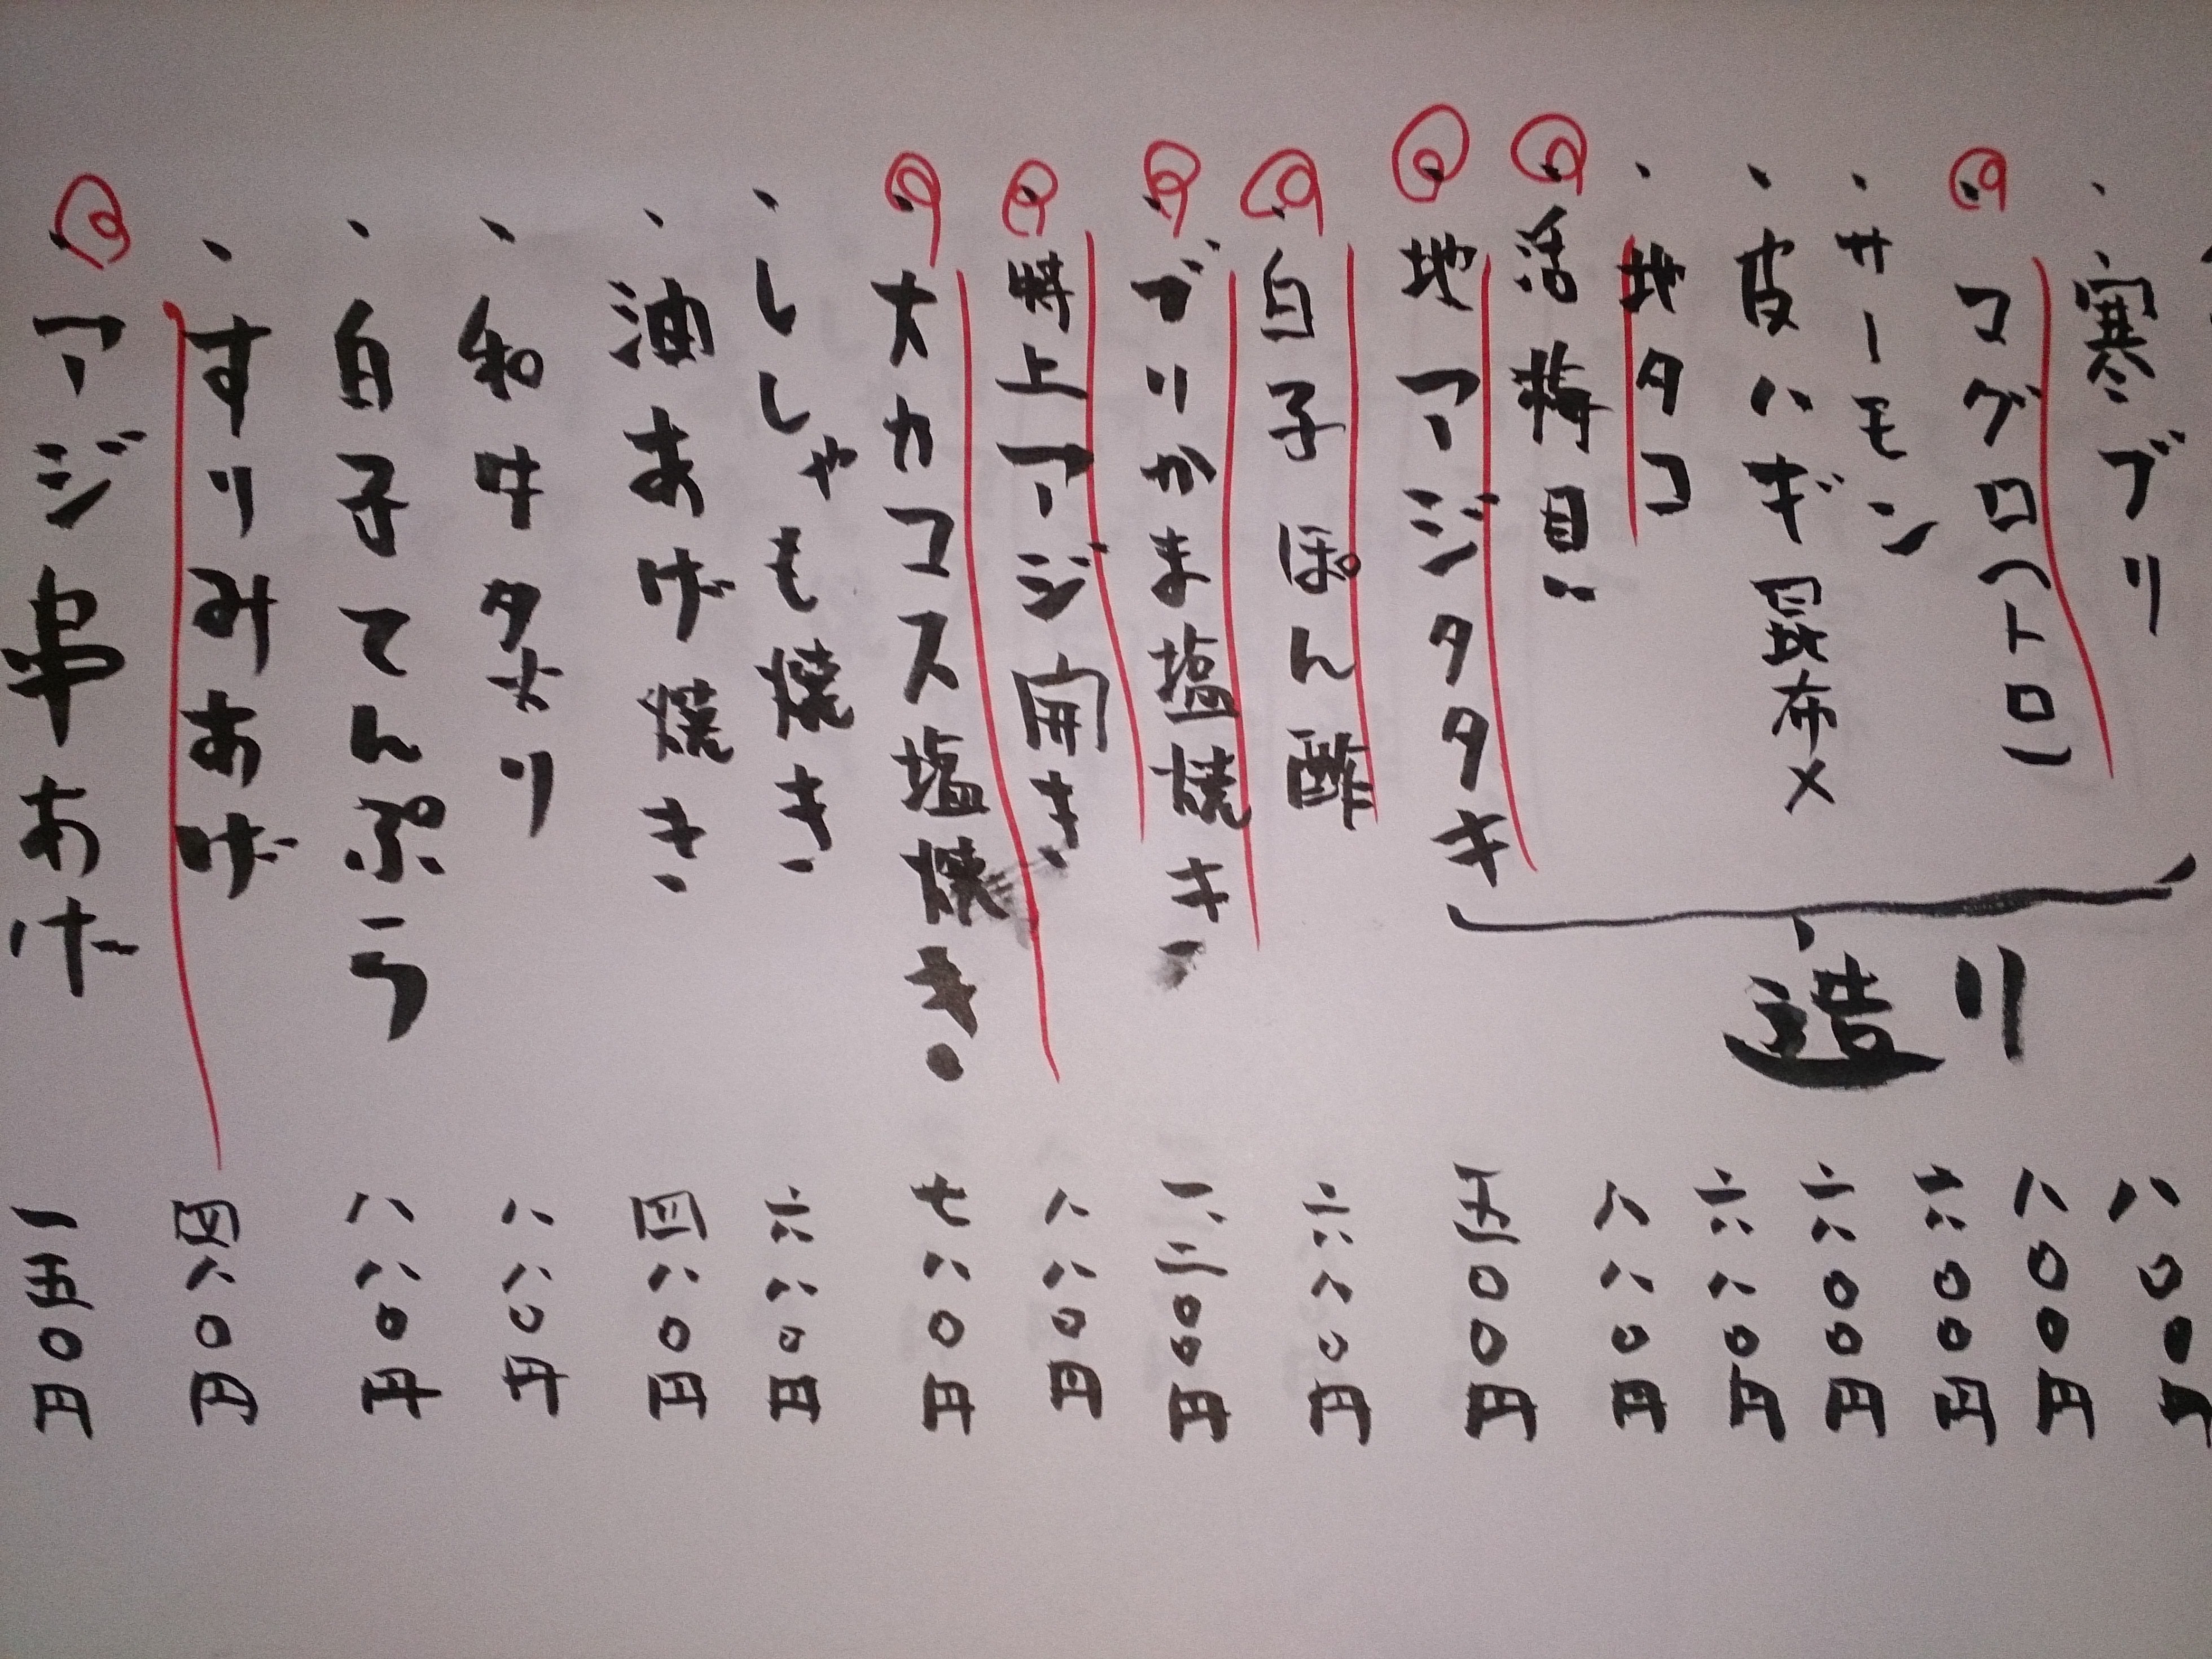 寒ブリ 八〇〇円
マグロ(トロ) 八〇〇円
サーモン 六〇〇円
皮ハギ昆布〆 六〇〇円
地タコ 六八〇円
活梅貝 八八〇円
地アジタタキ 五〇〇円
造り
白子ぽん酢 六八〇円
ブリかま塩焼き 一、二〇〇円
特上アジ開き 八八〇円
大カマス塩焼き 七八〇円
ししゃも焼き 六八〇円
油あげ焼き 四八〇円
和牛 八八〇円
白子てんぷら 八八〇円
すりみあげ 四八〇円
アジ串あげ 一五〇円